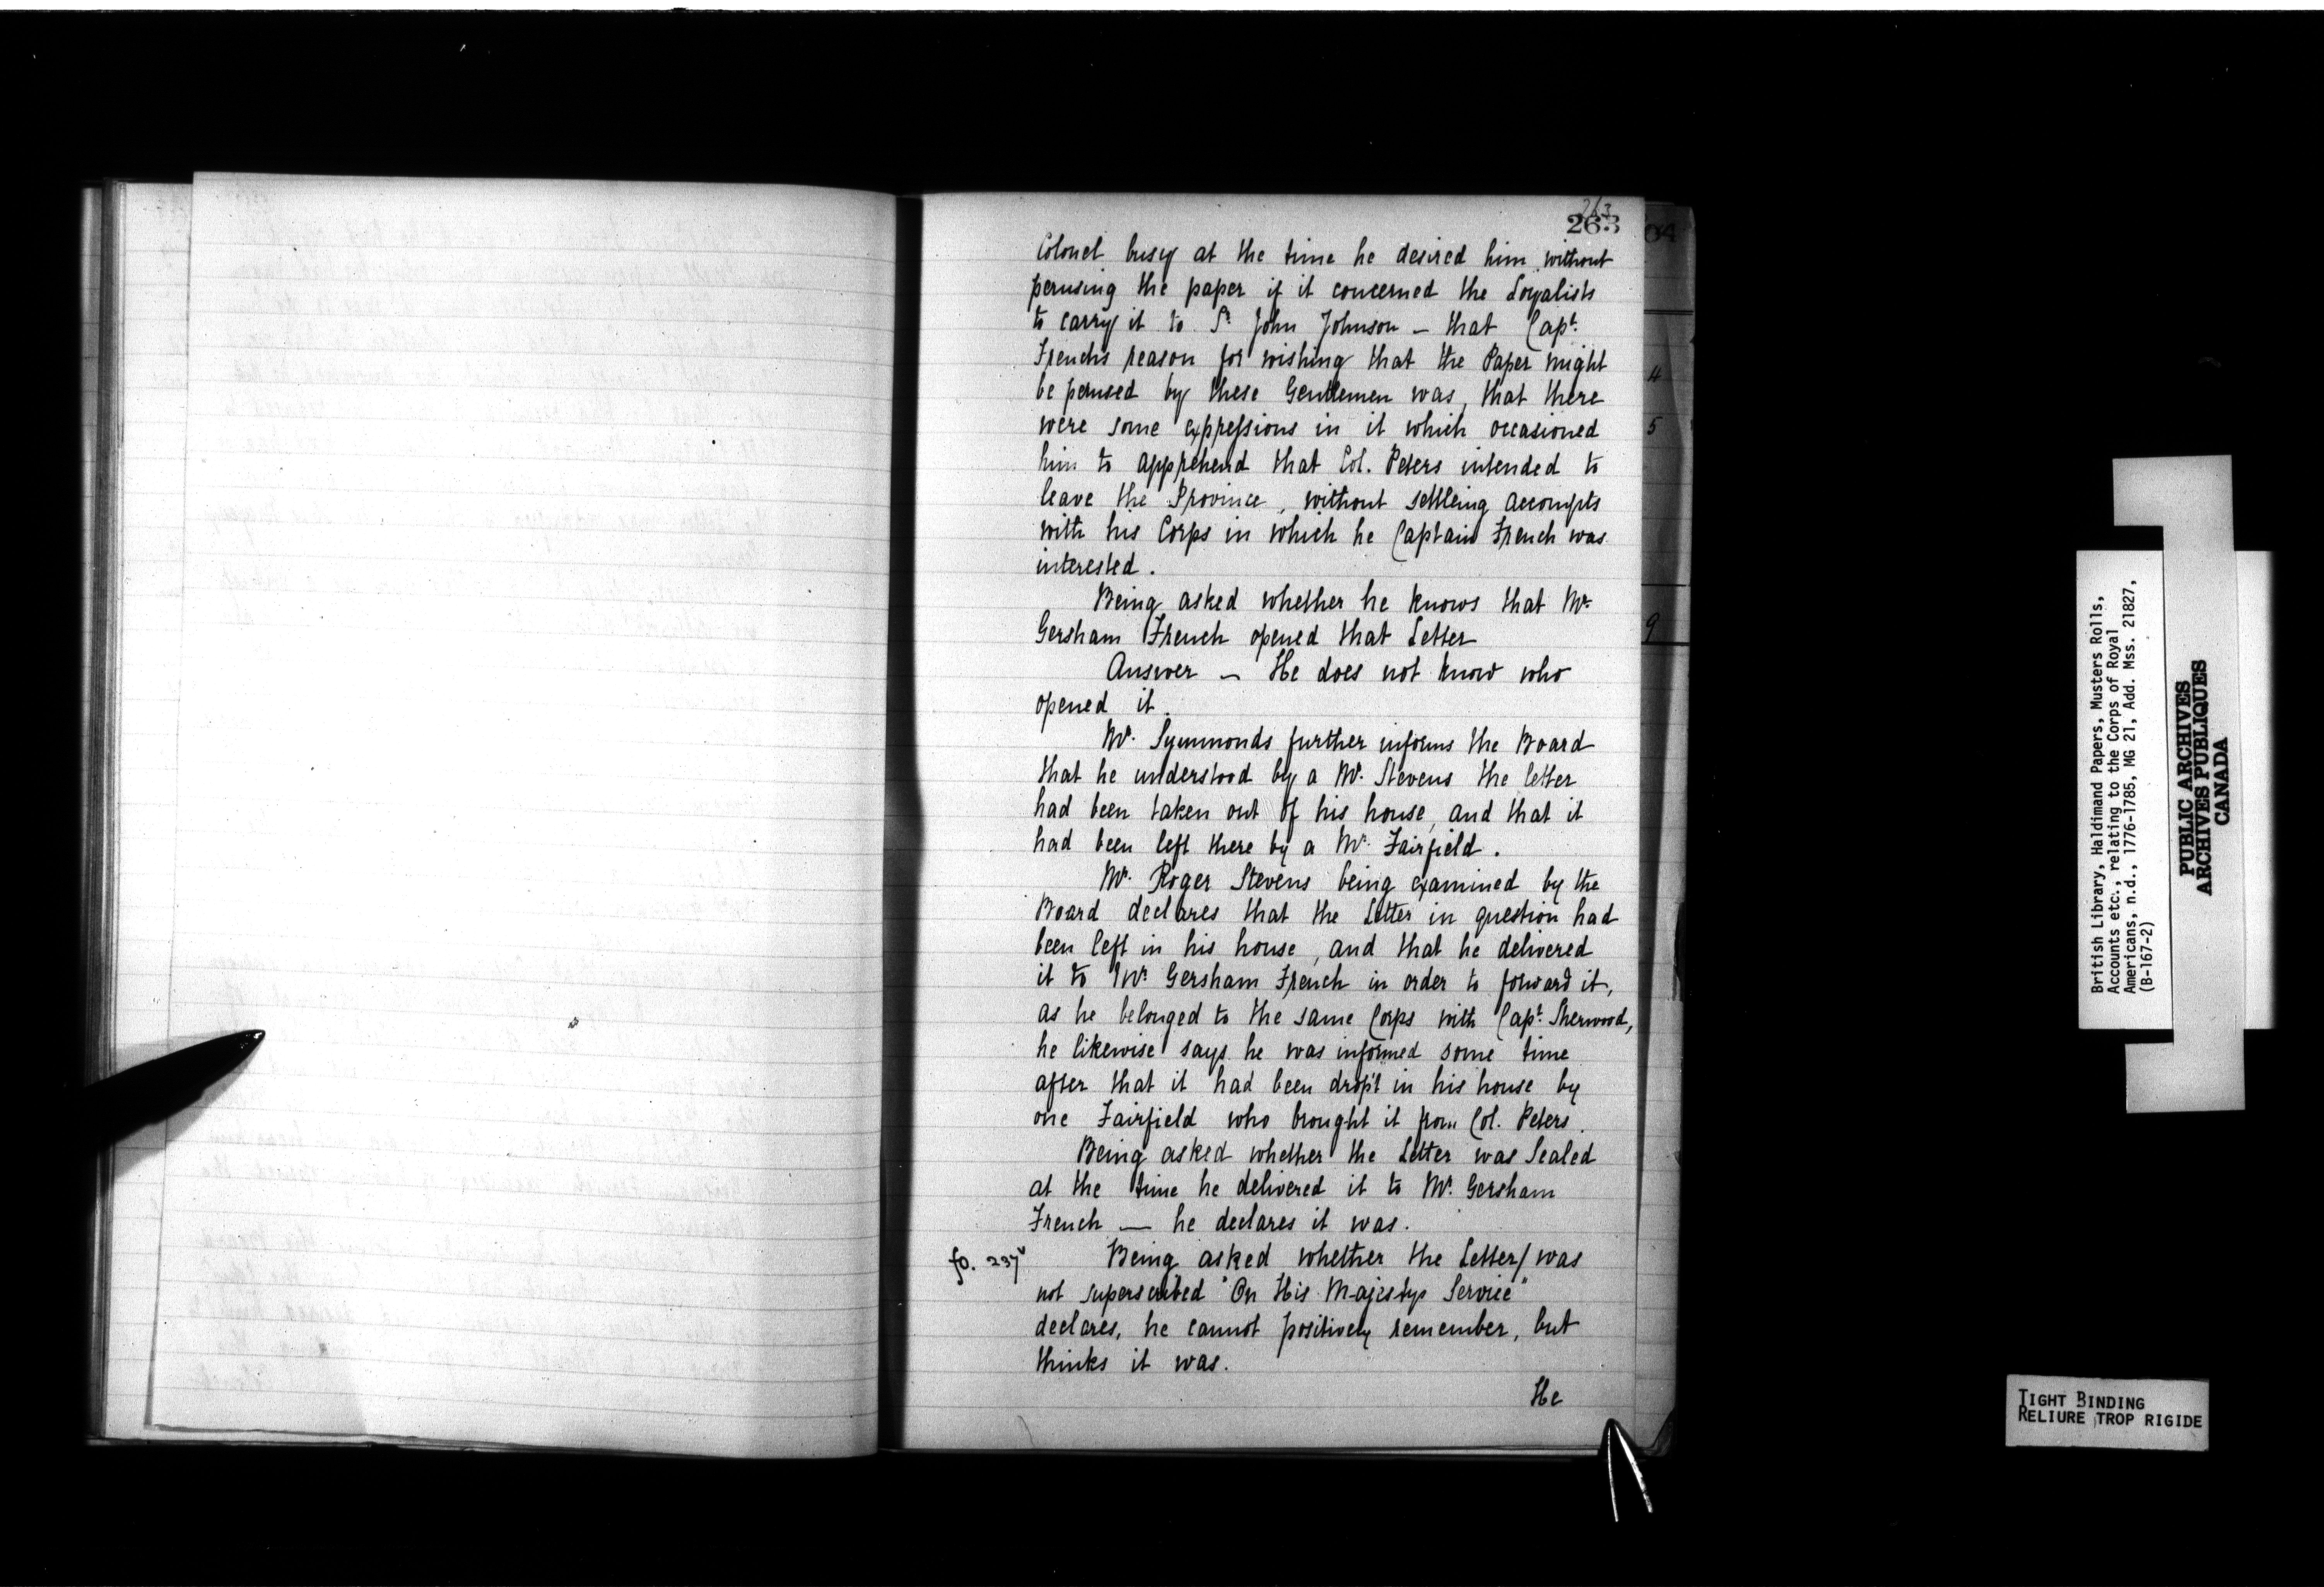 263
263
Colonel busy at the time he desired him without
perusing the paper if it concerned the Loyalists
to carry it to Sr. John Johnson – that Capt.
Frenchs reason for wishing that the Paper might
be perused by these Gentlemen was, that there
were some expressions in it which occasioned
him to apprehend that Col. Peters intended to
leave the Province, without settleing accompts
with his Corps in which he Captain French was
interested.
Being asked whether he knows that Mr.
Gersham French opened that Letter
Answer – He does not know who
opened it.
Mr. Symmonds further informs the Board
that he understood by a Mr. Stevens the letter
had been taken out of his house, and that it
had been left there by a Mr. Fairfield.
Mr. Roger Stevens being examined by the
Board declares that the Letter in question had
been left in his house, and that he delivered
it to Mr. Gersham French in order to forward it,
as he belonged to the same Corps with Capt. Sherwood,
he likewise says he was informed some time
after that it had been dropt in his house by
one Fairfield who brought it from Col. Peters.
Being asked whether the Letter was Sealed
at the time he delivered it to Mr. Gersham
French — he declares it was.
fo. 237v Being asked whether the Letter/ was
not superscribed "On His Majestys Service"
declares, he cannot positively remember, but
thinks it was.
He
4
5
9
British Library, Haldimand Papers, Musters Rolls,
Accounts etc., relating to the Corps of Royal
Americans, n.d., 1776-1785, MG 21, Add. Mss. 21827,
(B-167-2)
PUBLIC ARCHIVES
ARCHIVES PUBLIQUES
CANADA
TIGHT BINDING
RELIURE TROP RIGIDE